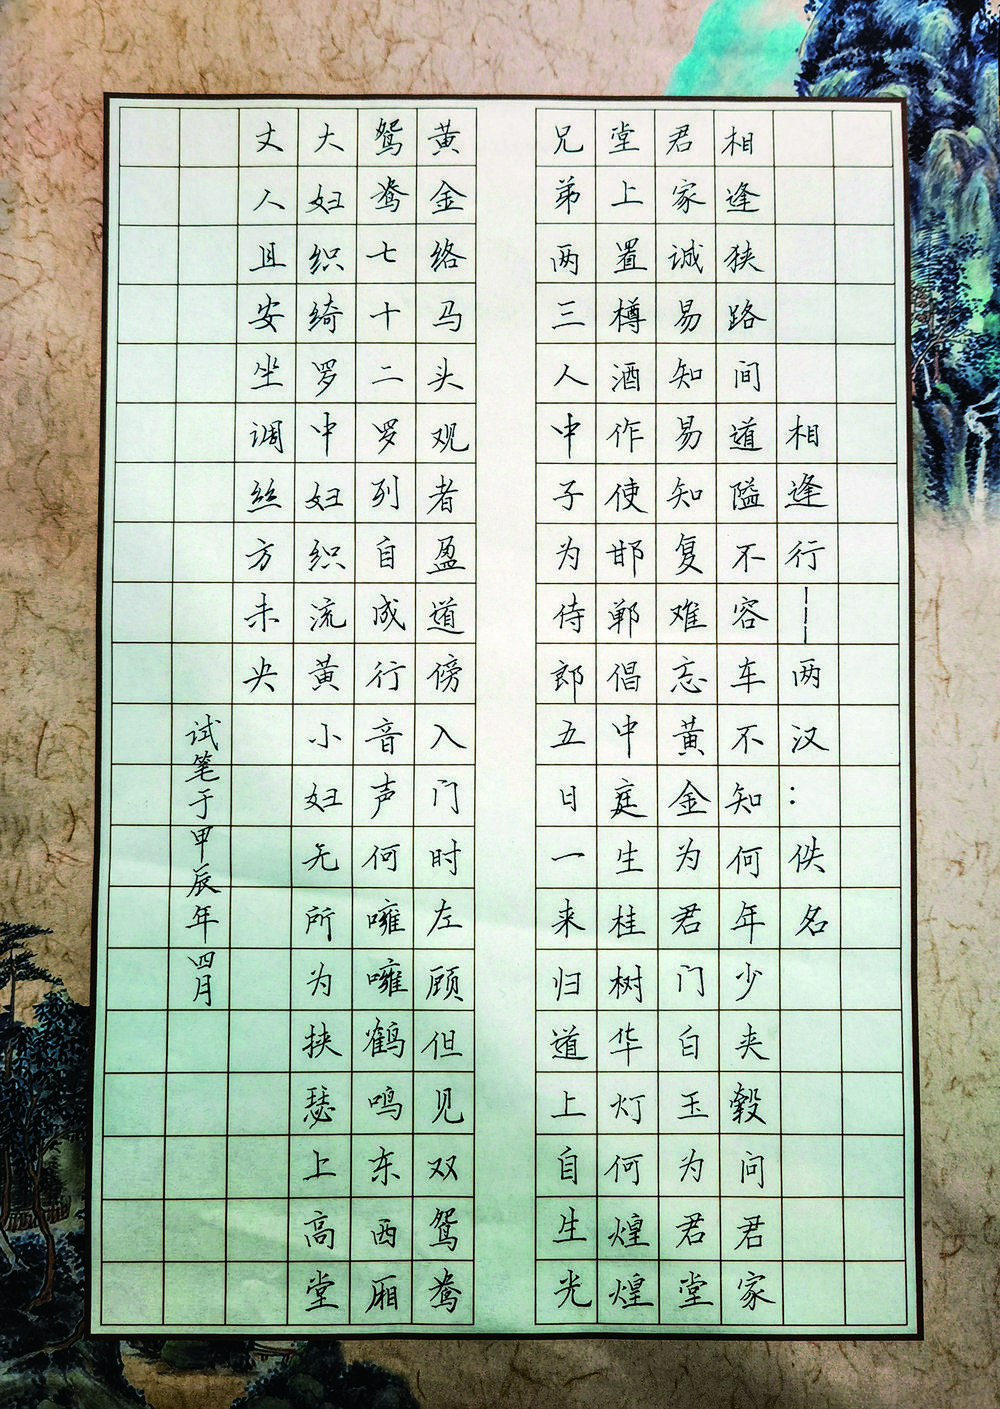 相逢行———两汉：佚名
相逢狭路间道隘不容车不知何年少夹毂问君家
君家诚易知易知复难忘黄金为君门白玉为君堂
堂上置樽酒作使邯郸倡中庭生桂树华灯何煌煌
兄弟两三人中子为侍郎五日一来归道上自生光
黄金络马头观者盈道傍入门时左顾但见双鸳鸯
鸳鸯七十二罗列自成行音声何噰噰鹤鸣东西厢
大妇织绮罗中妇织流黄小妇无所为挟瑟上高堂
丈人且安坐调丝方未央
试笔于甲辰年四月